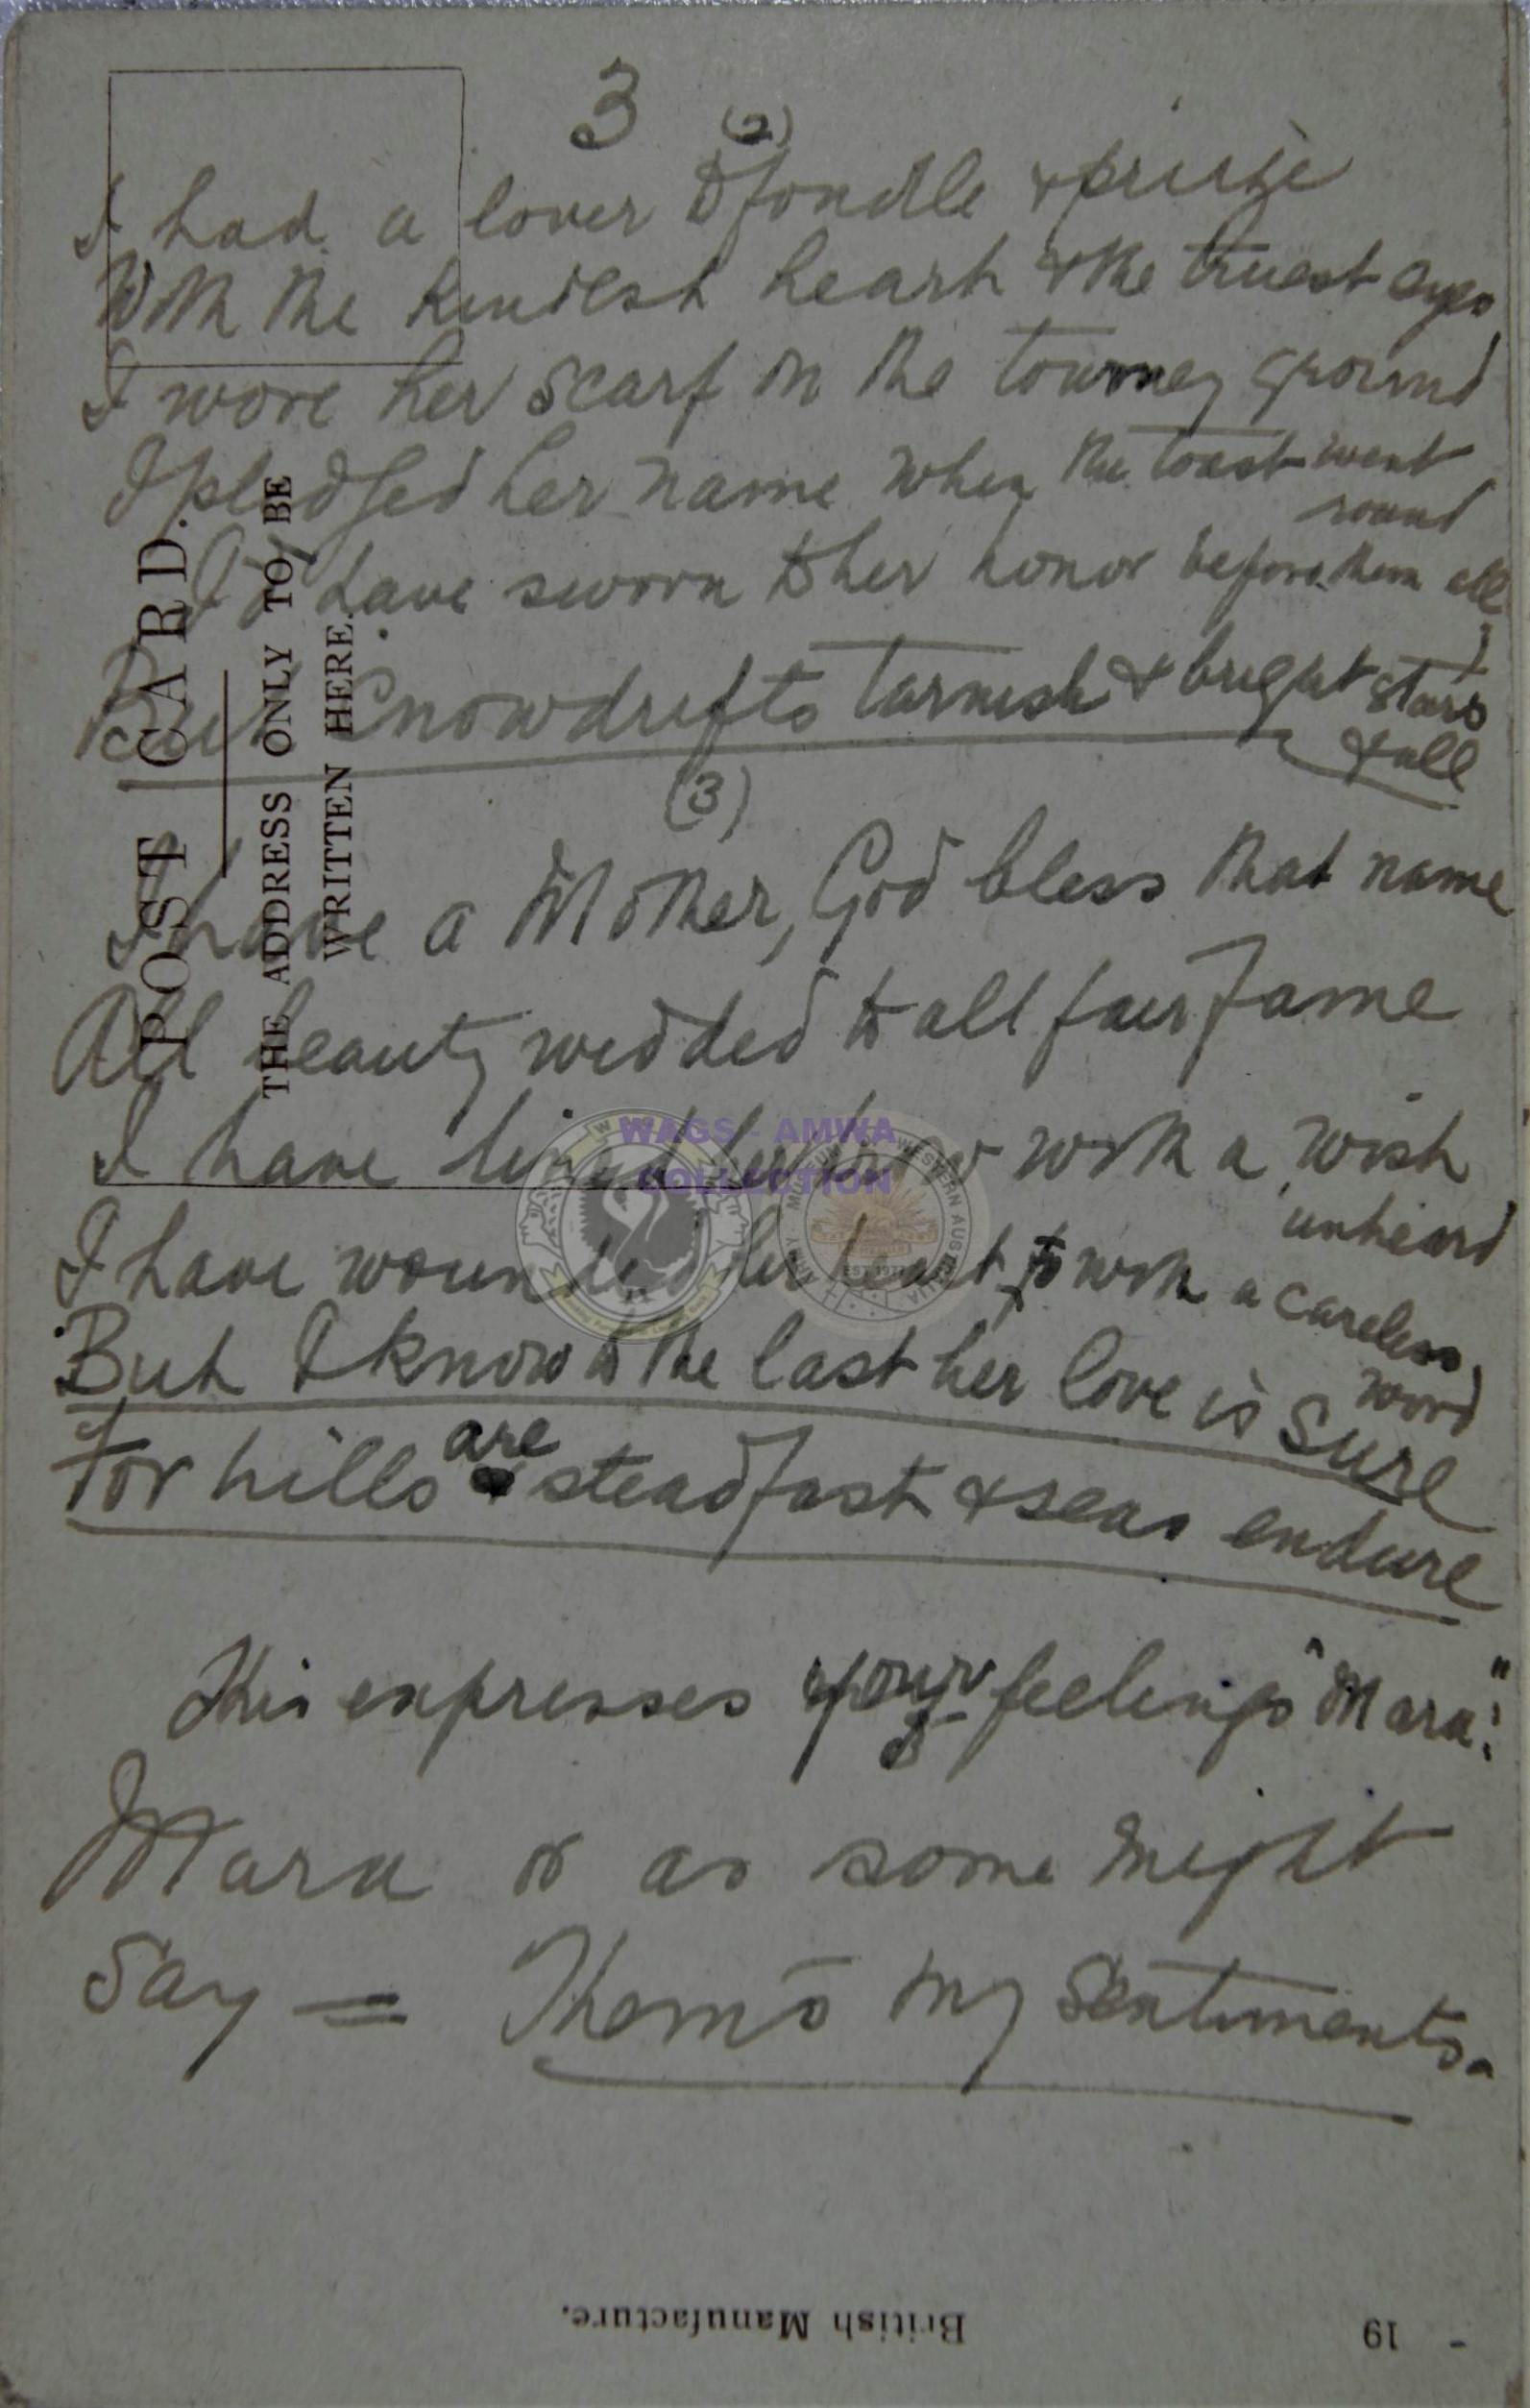 3 (2)
I had a lover to fondle & prize
With the kindest heart & the truest eyes
I wore her scarf on the tourney ground
I pledged her name when the toast went
round
I'd have sworn to her honor before them all
But Snowdrifts tarnish & bright stars
fall
(3)
I have a Mother, God bless that name
All beauty wedded to all fair fame
I have with a wish
unheard
I have wounded her heart with a careless
word
But I know to the last her love is sure
For hills are steadfast & seas endure
This expresses your feelings "Mara":
Mara or as some might
Say = Them's my Sentiments.
POST CARD.
THE ADDRESS ONLY TO BE
WRITTEN HERE.
WAGS - AMWA
COLLECTION
British Manufacture.
19